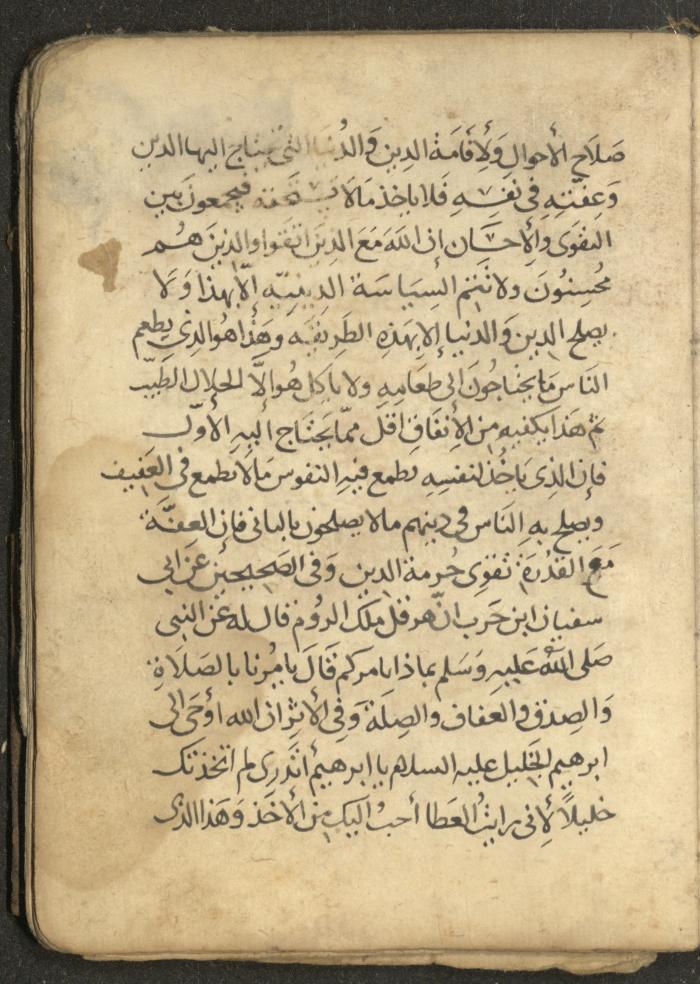 صَلَاحِ الأحوال وَلإِقَامَة الدِين وَالدُنيَا التى يحتاج اليها الدين
وَعِفتِهِ فى نفسِهِ فلا ياخذ مالا يستحقه فيجمعون بين
التقوَى والإحسَان إن اللهَ مَعَ الذِينَ اتقَوا والذِينَ هُم
مُحسِنُونَ ولا تَتِم السِيَاسَة الدِينِيّه إلّا بهذا وَلَا
يصلح الدين وَالدنيا إلا بِهَذِهِ الطَرِيقَه وهَذا هُوَ الذِي يطعم
الناسَ مَا يحتَاجُونَ إلى طعَامِهِ ولا ياكل هُو إلَّا الحَلال الطَيّب
ثم هَذا يكفيهِ مِن الإنفَاقِ اقل ممّا يَحتَاج اليهِ الأوّل
فإن الذِى يَاخُذ لنفسِهِ تطمع فيهِ النفوس مَا لا تطمع فى العَفِيف
ويصلح بهِ الناس فى دِينِهم مالا يصلحُون بالثانى فإن العِفَّة
مَعَ القُدْرَة تُقوِى حُرمة الدِين وَفى الصَحِيحَين عَن ابى
سفيان ابن حَرب انّ هرقل مَلِك الروُم قال له عَن النبى
صَلى اللهُ عَليهِ وَسَلم بماذا يامركم قَالَ يامُرنا بالصَلَاةِ
وَالصِدق والعفاف والصِلَة وَفِى الأثرِ ان الله اوْحَى إلى
ابرهيم الخَليل عليه السلام يا ابرهيمُ أتَدرِى لم اتخذتك
خليلاً لأنى رايتُ العَطا أحبّ اليك مِن الأخَذ وَهَذا الذى